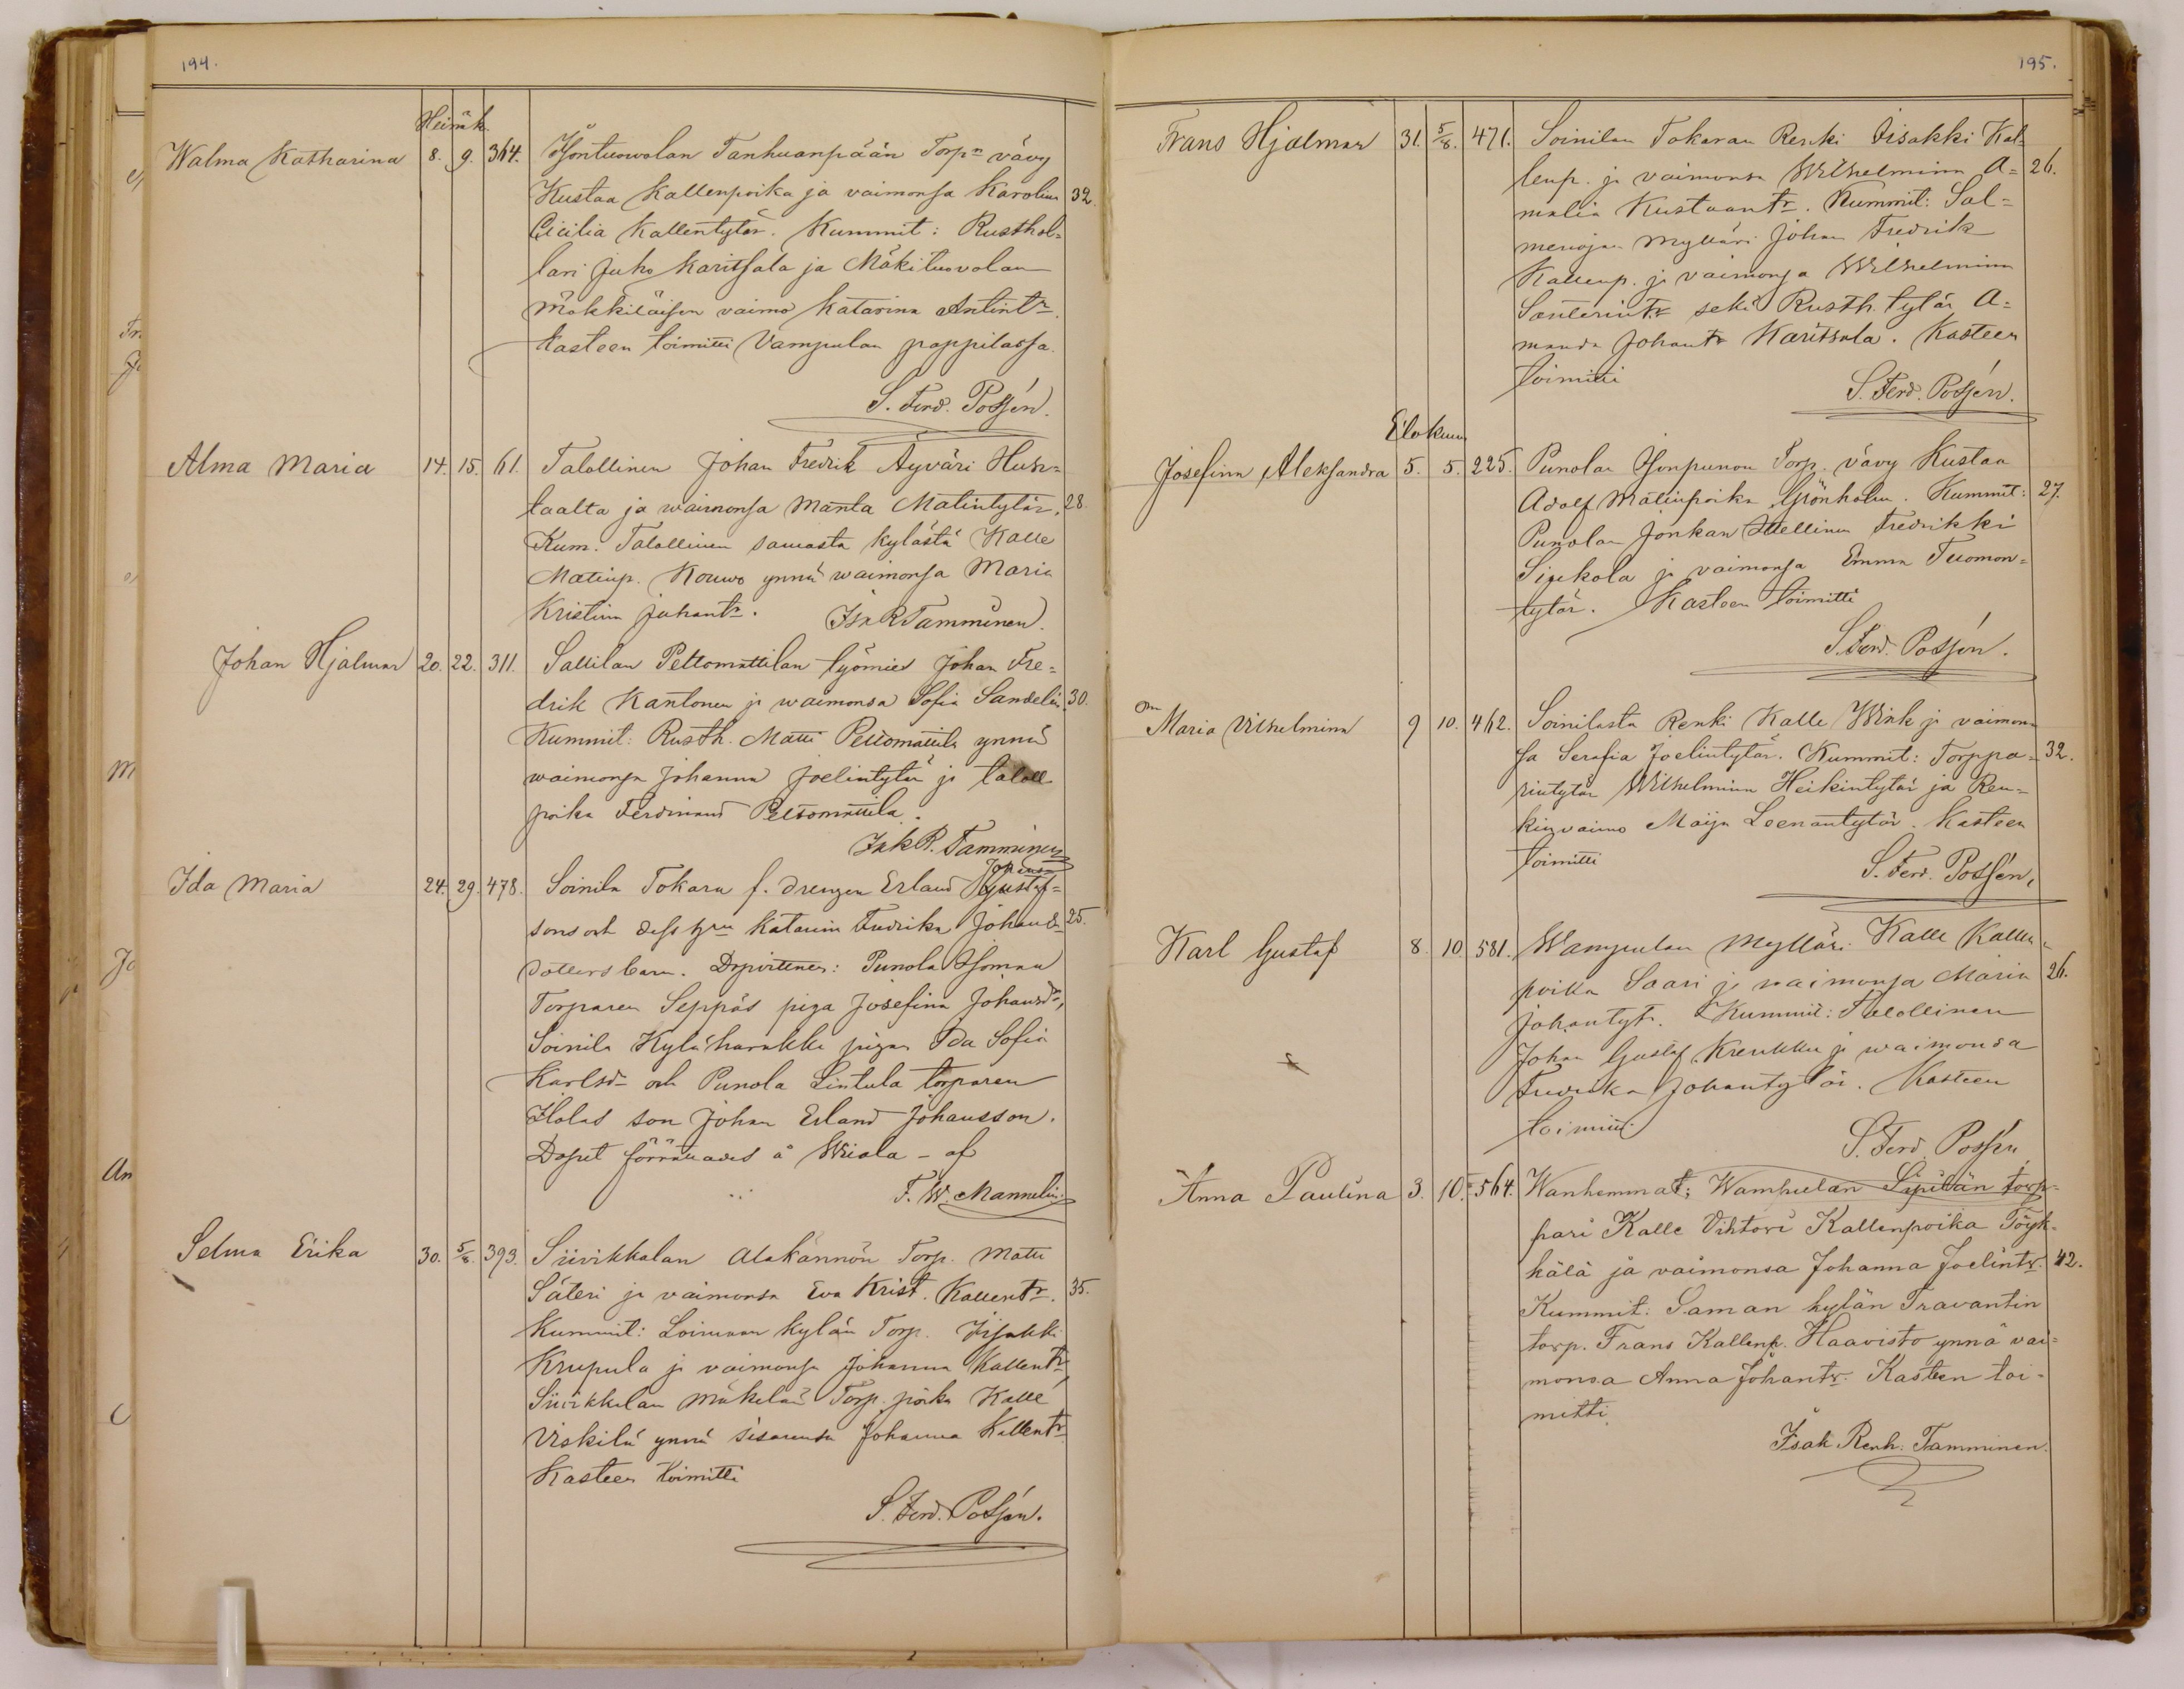 194.
Heinäk.
Walma Katharina 8. 9. 364. Isontuowolan Tanhuanpään Torpn vävy
Kustaa Kallenpoika ja vaimonsa Karolina 32.
Cicilia Kallentytär. Kummit: Rusthol=
lari Juho Karitsala ja Mäkituovolan
Mökkiläisen vaimo Katarina Antintr.
kasteen toimitti Vampulan pappilassa.
S. Ferd. Possén.
Alma Maria 14. 15. 61. Talollinen Johan Fredrik Äyväri Huh=
taalta ja waimonsa Manta Matintytär. 28.
Kum. Talollinen samasta kylästä Kalle
Matinp. Kouwo ynnä waimonsa Maria
Kristiina Juhantr. Isak R Tamminen.
Johan Hjalmar 20. 22. 311. Sallilan Peltomattilan työmies Johan Fre=
drik Kantonen ja waimonsa Sofia Sandelin. 30.
Kummit: Rusth. Matti Peltomattila ynnä
waimonsa Johanna Joelintytär ja taloll.
poika Ferdinand Peltomattila.
Isak R. Tamminen
Johans
Ida Maria 24. 29. 478. Soinila Tokara f. drengen Erland Gustaf=
sons och dess hru Katarina Fredrika Johans 25.
dotters barn. Dopvittnen: Punola
Torparen Seppäs piga Josefina Johansdr,
Soinila Kylä harakka pigan Ida Sofia
Karlsdr och Punola Lintula torparen
Ilolas son Johan Erland Johansson.
Dopet förrättades å Wiiala - af
F. W. Mannelin.
Selma Erika 30. 5/8. 393. Siivikkalan Alakännön Torp. Matti
Säteri ja vaimonsa Eva Krist. Kallentr. 35.
Kummit: Loimaan kylän Torp. Iisakki
Krupula ja vaimonsa Johanna Kallentr,
Siivikkalan Mäkelän Torp. poika Kalle
Viskilä ynnä sisarensa Johanna Kallentr
Kasteen toimitti
S. Ferd. Possén.
195.
Frans Hjalmar 31. 5/8. 471. Soinilan Tokaran Renki Iisakki Kal=
lenp. ja vaimonsa Wilhelmina A= 26.
malia Kustaantr. Kummit: Sal=
menojan Mylläri Johan Fredrik
Kallenp. ja vaimonsa Wilhelmina
Santerintr sekä Rusth. tytär A=
manda Johantr Karitsala. Kasteen
toimitti
S. Ferd. Possén.
Elokuu
Josefina Aleksandra 5. 5. 225. Punolan Isonpunon Torp. vävy Kustaa
Adolf Matinpoika Grönholm. Kummit: 27.
Punolan Jonkan Itsellinen Fredrikki
Sipekola ja vaimonsa Emma Tuomon=
tytär. Kasteen toimitti
S. Ferd. Possén.
Maria Vilhelmina 9 10. 462. Soinilasta Renki Kalle Wink ja vaimon
sa Serafia Joelintytär. Kummit: Torppa= 32.
rintytär Wilhelmina Heikintytär ja Ren=
kinvaimo Maija Leenantytär. Kasteen
toimitti
S. Ferd. Possén.
Karl Gustaf 8. 10 581. Wampulan Mylläri Kalle Kallen=
poika Saari ja waimonsa Maria 26.
Johantyt. Kummit: Talollinen
Johan Gustaf Krenkku ja waimonsa
Fredrika Johantytär. Kasteen
toimitti
S. Ferd. Possén
Anna Paulina 3. 10. 564. Wanhemmat; Wampulan Sipilän torp=
pari Kalle Vihtori Kallenpoika Töyk=
kälä ja vaimonsa Johanna Joelintr. 42.
Kummit: Saman kylän Travantin
torp. Frans Kallenp. Haavisto ynnä vai=
monsa Anna Johantr. Kasteen toi=
mitti
Isak Renh. Tamminen.